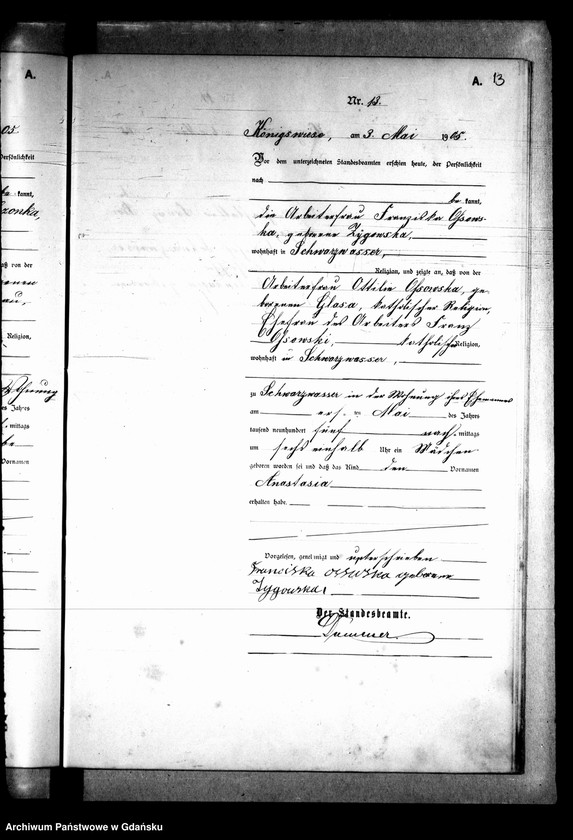 A.
A. 13
Nr. 13.
Königswiese, am 3. Mai 1905.
Vor dem unterzeichneten Standesbeamten erschien heute, der Persönlichkeit
nach
be kannt,
die Arbeiterfrau Franziska Ossows-
ka, geborene Zygowska,
wohnhaft in Schwarzwasser,
Religion, und zeigte an, daß von der
Arbeiterfrau Ottilie Ossowska, ge-
borenen Glasa, katholischer Religion,
Ehefrau des Arbeiters Franz
Ossowski, katholischer Religion,
wohnhaft in Schwarzwasser,
zu Schwarzwasser in der Wohnung ihres Ehemannes
am ersten Mai des Jahres
tausend neunhundert fünf nach mittags
um sechs einhalb Uhr ein Mädchen
geboren worden sei und daß das Kind den Vornamen
Anastasia
erhalten habe.
Vorgelesen, genehmigt und unterschrieben
Franciszka geborene
Zygowska
Der Standesbeamte.
05
Persönlichkeit
kannt,
daß von der
Religion,
des Jahres
mittags
Vornamen
Archiwum Państwowe w Gdańsku